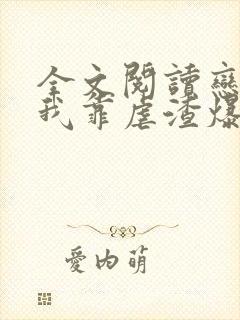 全文閱讀戀
我靠虐渣爆
愛內萌